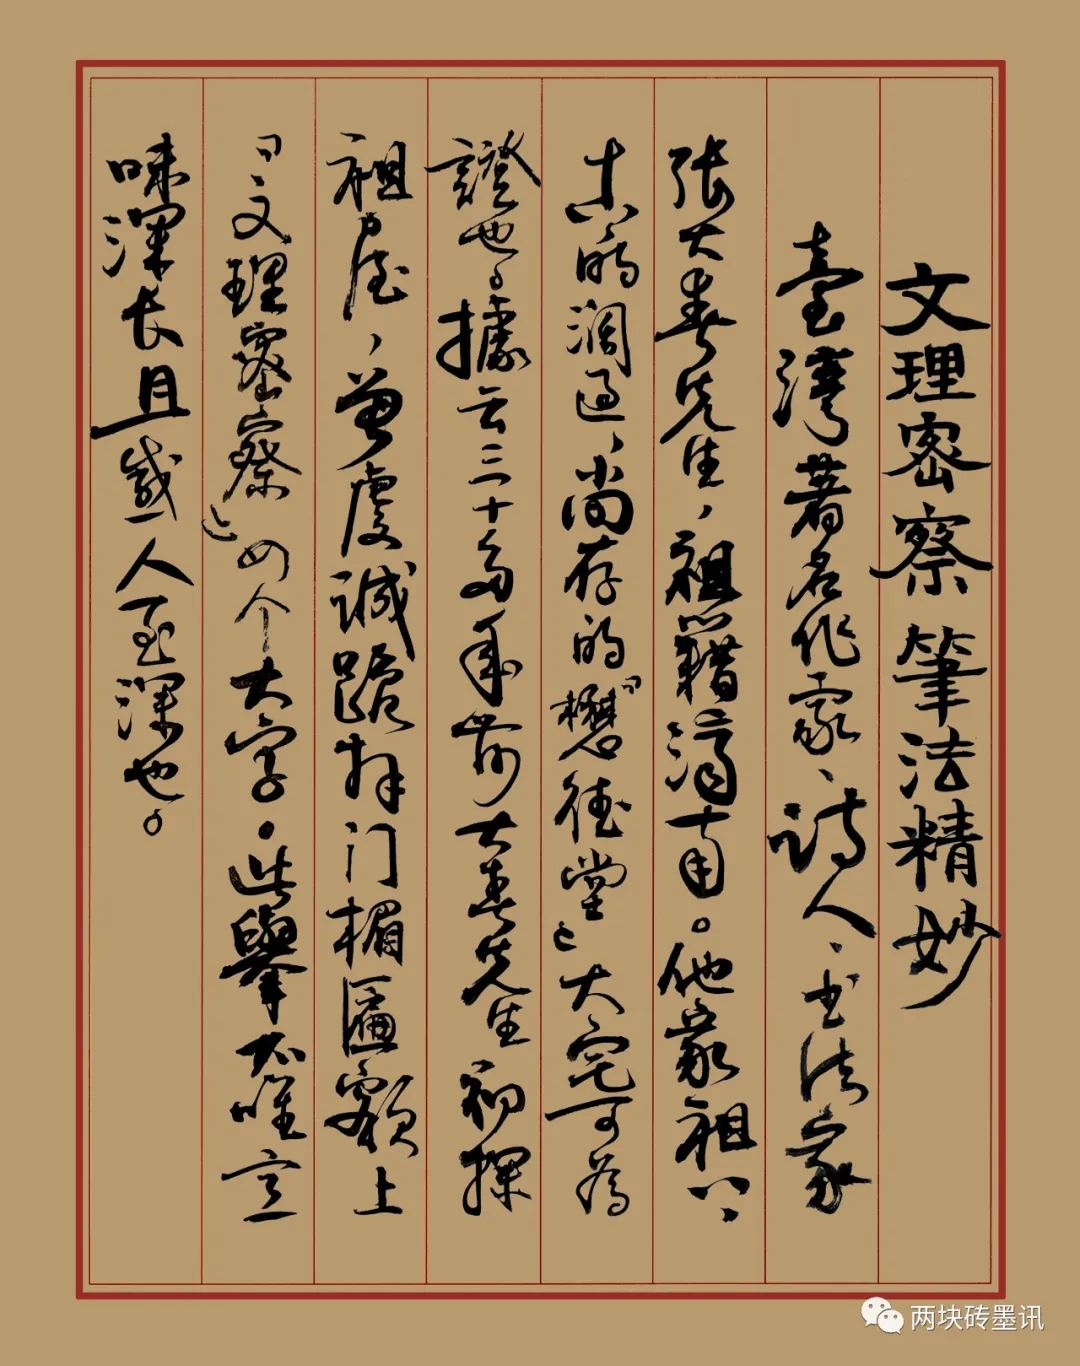 文理密察 筆法精妙
臺灣著名作家、詩人、书法家
张大春先生，祖籍濟南。他家祖上
古的阔过，尚存的「懋德堂」大宅可為
證也。據云三十多年前大春先生初探
祖屋，曾虔诚跪拜门楣匾额上
「文理密察」四个大字。此舉不唯意
味深长且感人至深也。
两块砖墨讯